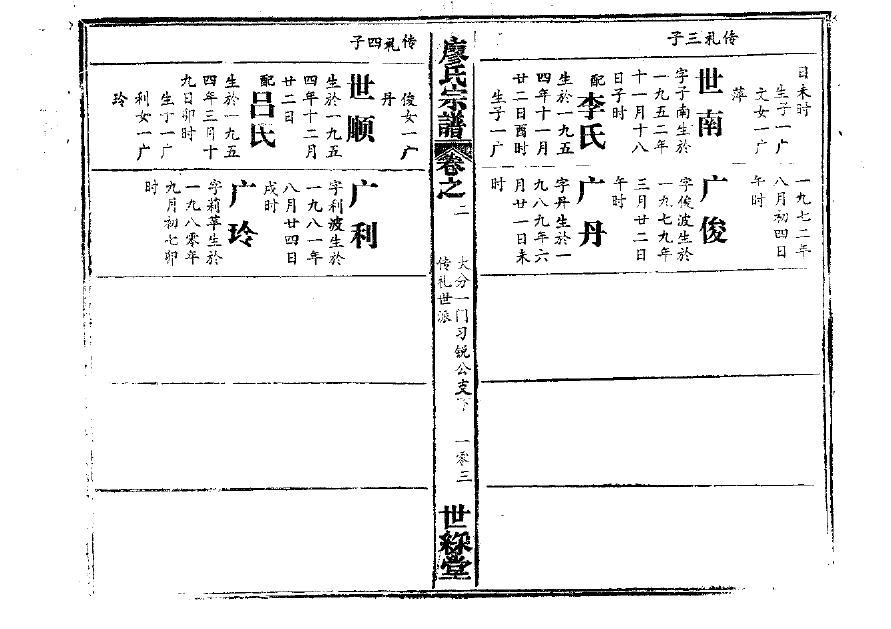 传礼三子
日未时
生子一广
文女一广
萍
世南
字子南生於
一九五二年
十一月十八
日子时
配李氏
生於一九五
四年十一月
廿二日酉时
生子一广
一九七二年
八月初四日
午时
广俊
字俊波生於
一九七九年
三月廿二日
午时
广丹
字丹生於一
九八九年六
月廿一日未
时
廖氏宗譜
卷之二
大分一门习锐公支下
传礼世派
一零三
世綵堂
传礼四子
俊女一广
丹
世顺
生於一九五
四年十二月
廿二日
配吕氏
生於一九五
四年三月十
九日卯时
生子一广
利女一广
玲
广利
字利波生於
一九八一年
八月廿四日
戌时
广玲
字莉苹生於
一九八零年
九月初七卯
时